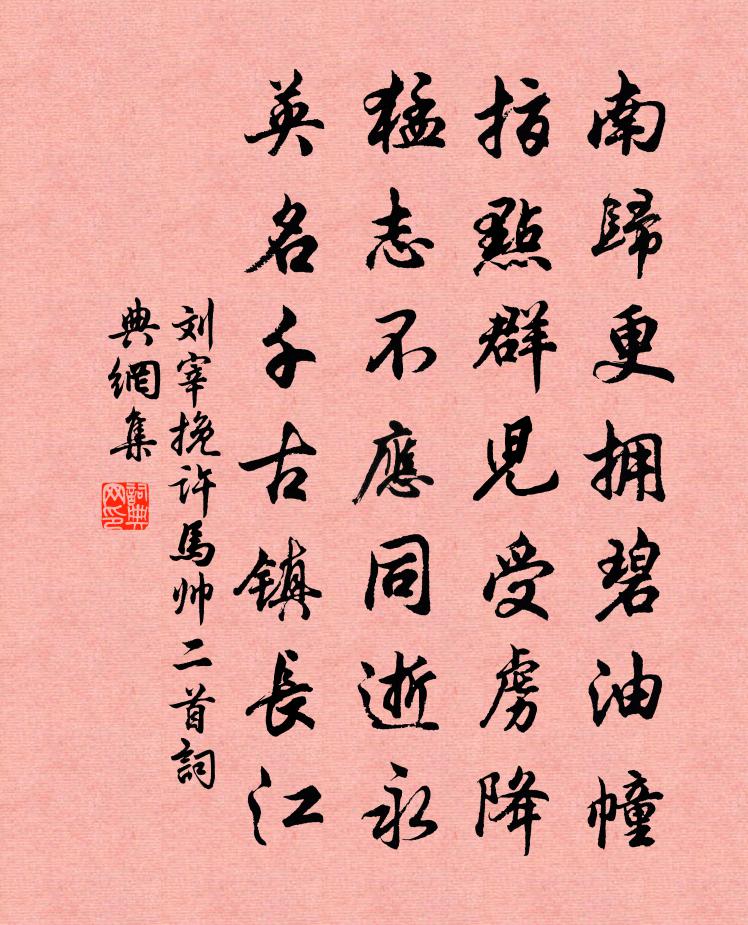 南歸更拥碧油幢
指點群児受虜降
猛志不應同逝永
英名千古镇長江
刘宰挽许馬帅二首詞
典網集
詞典网印